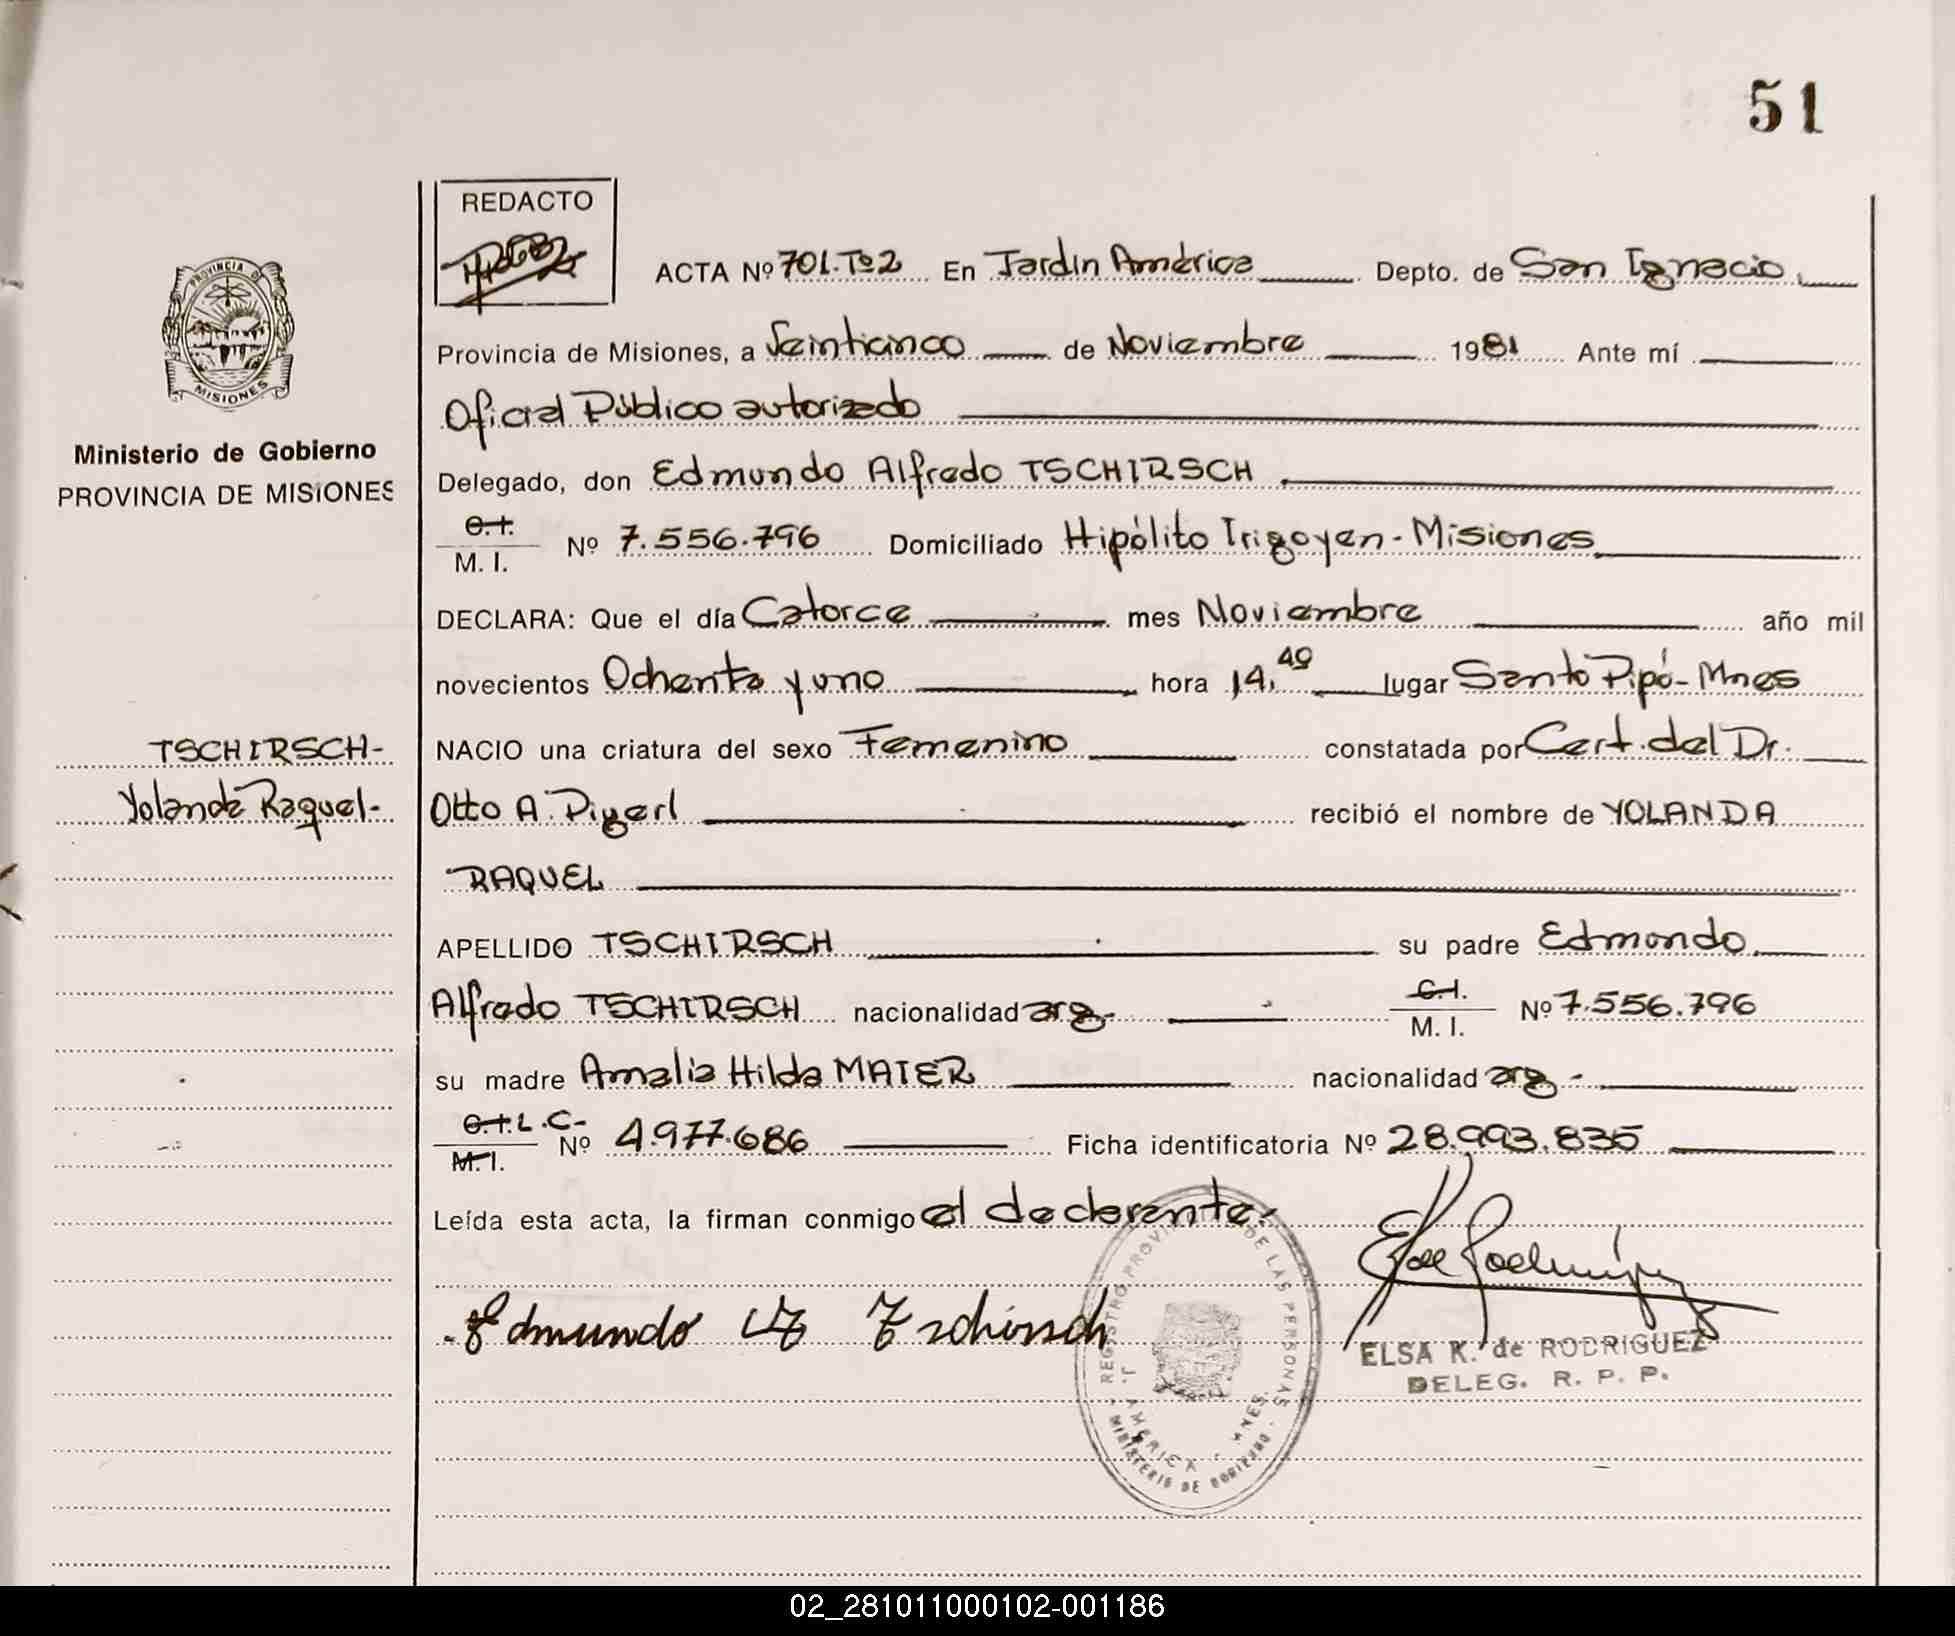 51
REDACTO
ACTA Nº 701.Tº2 En Jardín América Depto. de San Ignacio,
Provincia de Misiones, a Veinticinco de Noviembre 1981 Ante mí
Oficial Público autorizado
Delegado, don Edmundo Alfredo TSCHIRSCH
C.I. Nº 7.556.796 Domiciliado Hipólito Irigoyen - Misiones
M. I.
DECLARA: Que el día Catorce mes Noviembre año mil
novecientos Ochenta y uno hora 14,40 lugar Santo Pipó - Mnes
NACIO una criatura del sexo Femenino constatada por Cert. del Dr.
Otto A. Pigerl recibió el nombre de YOLANDA
RAQUEL
APELLIDO TSCHIRSCH su padre Edmundo
Alfredo TSCHIRSCH nacionalidad arg. C.I. Nº 7.556.796
M. I.
su madre Amalia Hilda MAIER nacionalidad arg -
C.I. L.C- Nº 4.977.686 Ficha identificatoria Nº 28.993.835
M.I.
Leída esta acta, la firman conmigo el declarante.
Edmundo Tschirsch
ELSA K. de RODRIGUEZ
DELEG. R. P. P.
REGISTRO PROVINCIAL DE LAS PERSONAS
J. AMERICA - MNES.
MINISTERIO DE GOBIERNO
PROVINCIA DE
MISIONES
Ministerio de Gobierno
PROVINCIA DE MISIONES
TSCHIRSCH-
Yolanda Raquel-
02_281011000102-001186